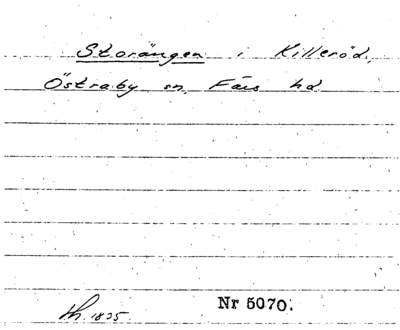 Storängen i Killeröd,
Östraby sn, Färs hd
1835 Nr 5070.